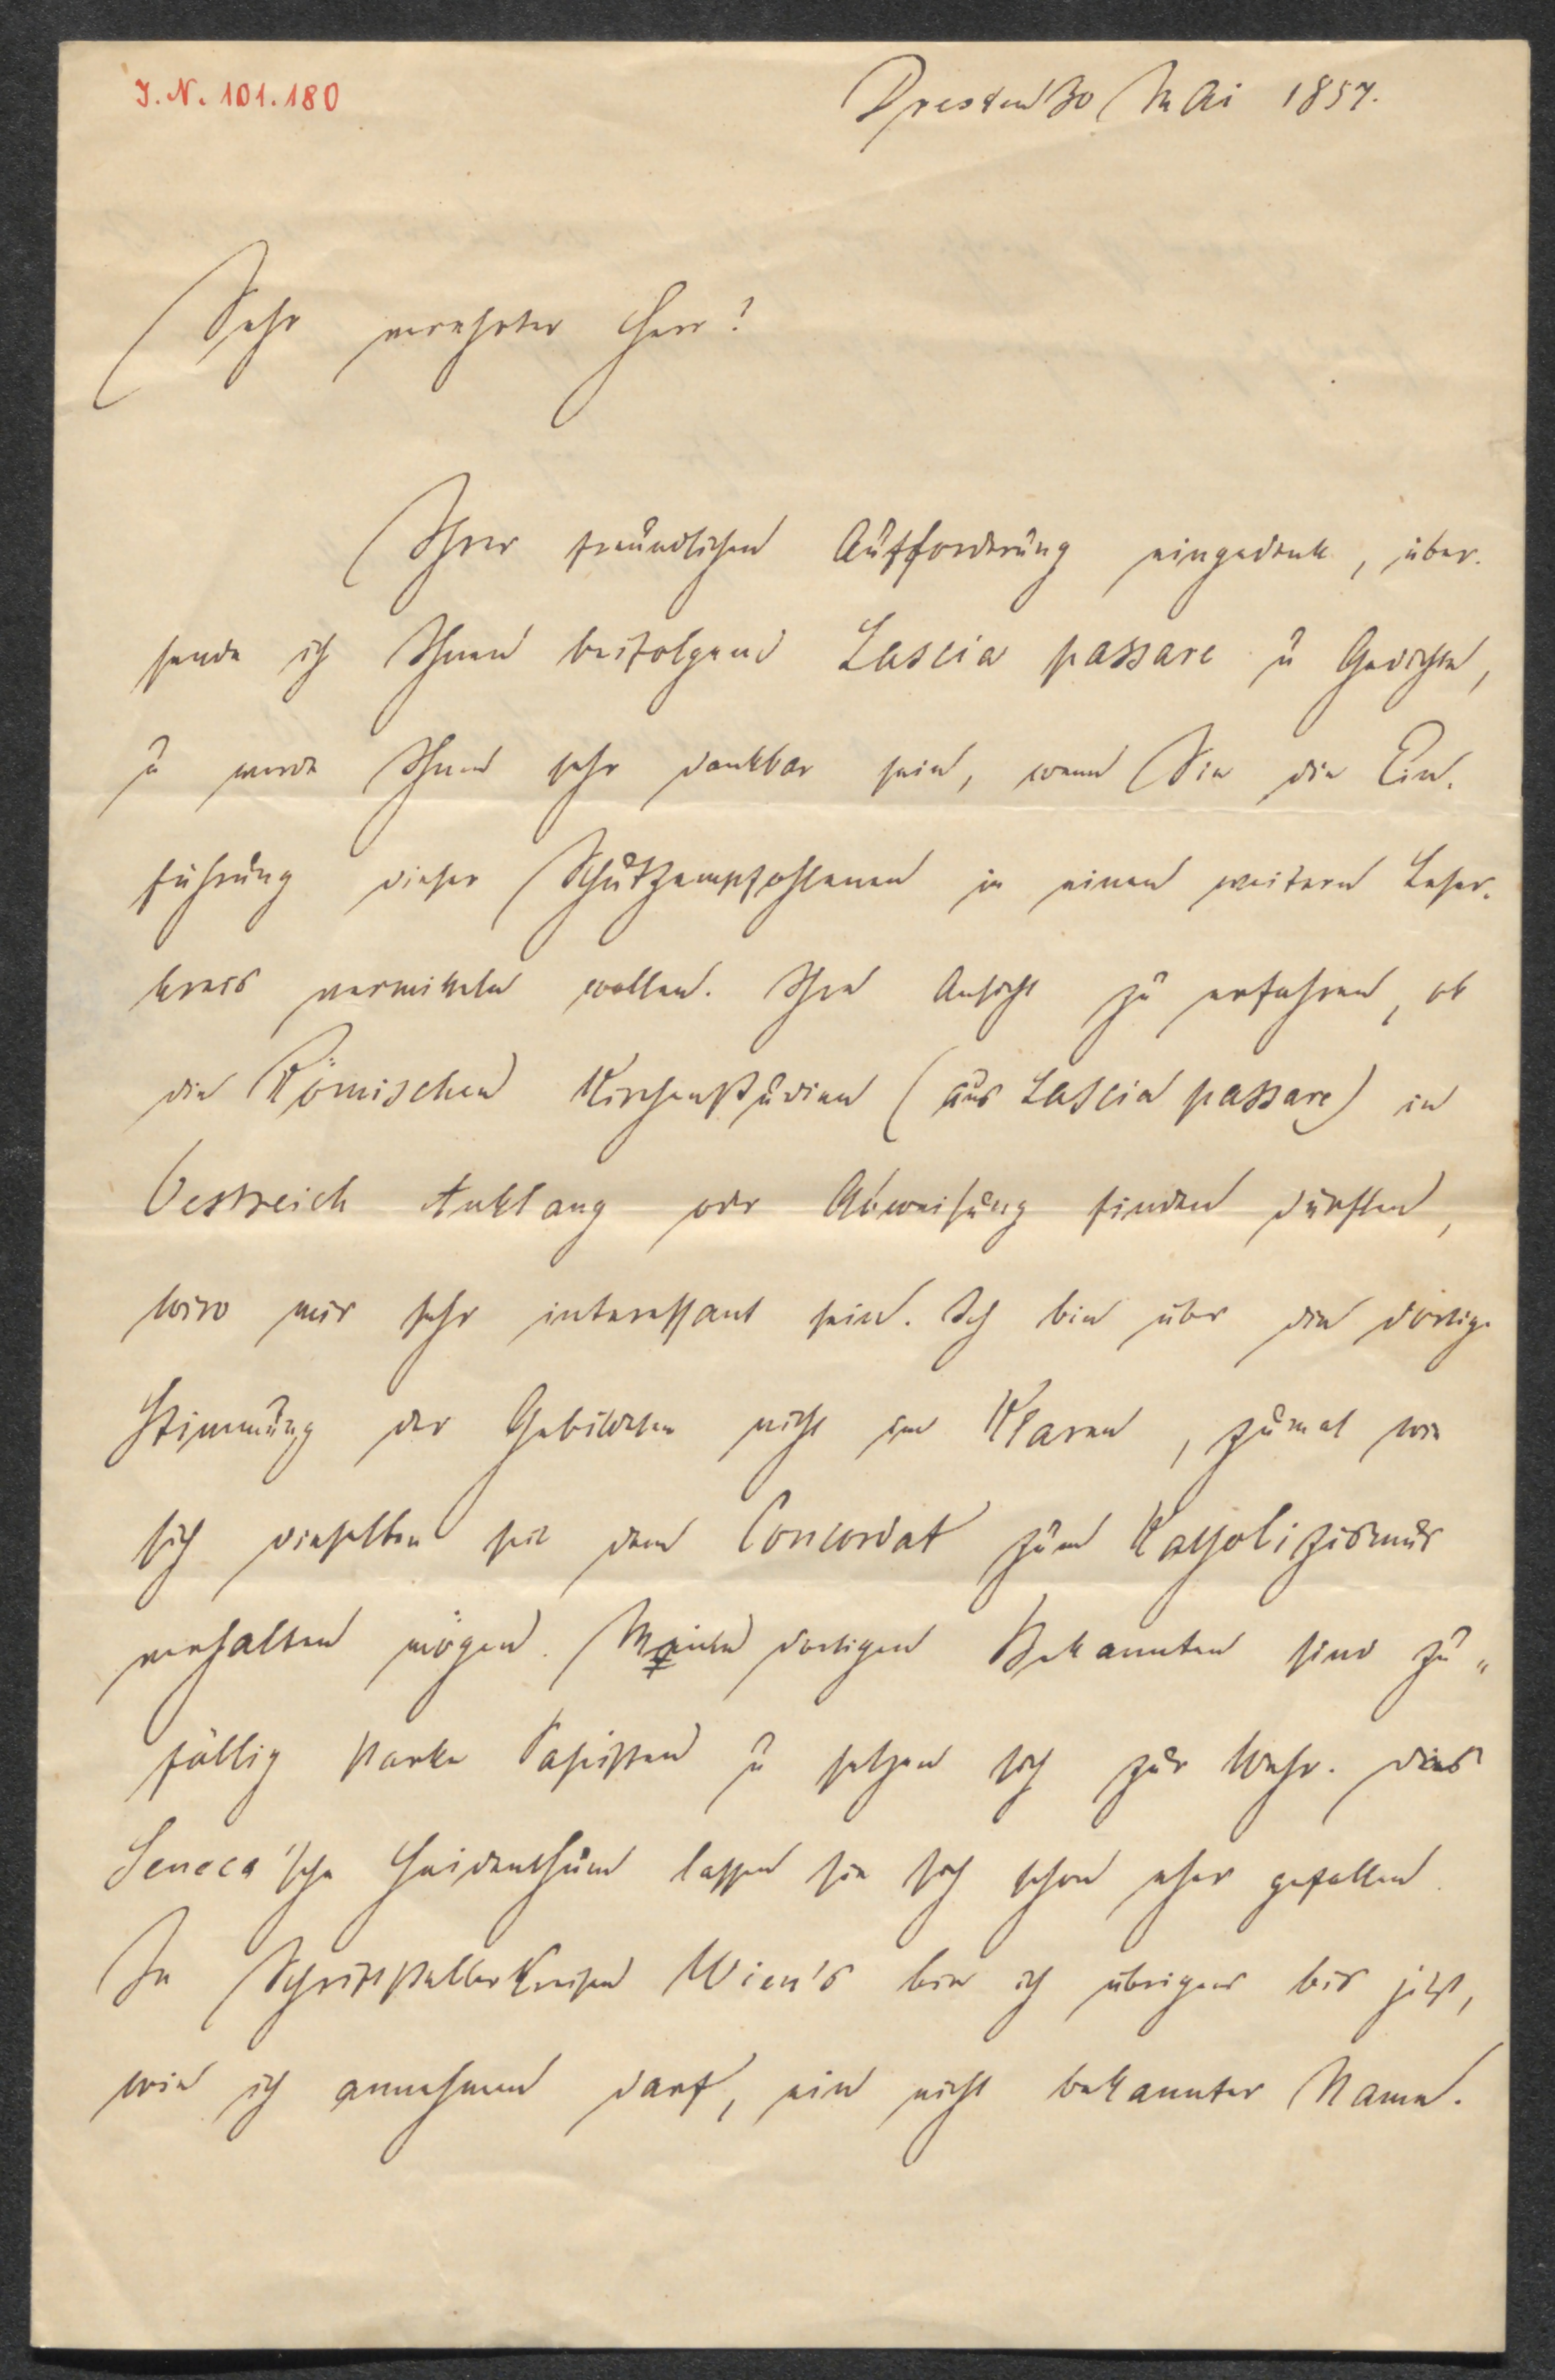 J. N. 101.180
Dresden 30 Mai 1857.
Sehr verehrter Herr!
Ihrer freundlichen Aufforderung eingedenk, über-
sende ich Ihnen beifolgend Lascia passare u Gedichte,
u werde Ihnen sehr dankbar sein, wenn Sie die Ein-
führung dieser Schutzempfohlenen in einen weitern Leser-
kreis vermitteln wollen. Ihre Ansicht zu erfahren, ob
die Römischen Kirchenstudien (aus Lascia passare) in
Oestreich Anklang oder Abweisung finden dürften,
wird mir sehr interessant sein. Ich bin über die dortige
Stimmung der Gebildeten nicht im Klaren, zumal wie
sich dieselben seit dem Concordat zum Katholizismus
verhalten mögen. Meine dortigen Bekannten sind zu„
fällig starke Papisten u setzen sich zur Wehr. Das
Seneca'sche Heidenthum lassen sie sich schon eher gefallen.
In Schriftstellerkreisen Wien's bin ich übrigens bis jetzt,
wie ich annehmen darf, ein nicht bekannter Name.